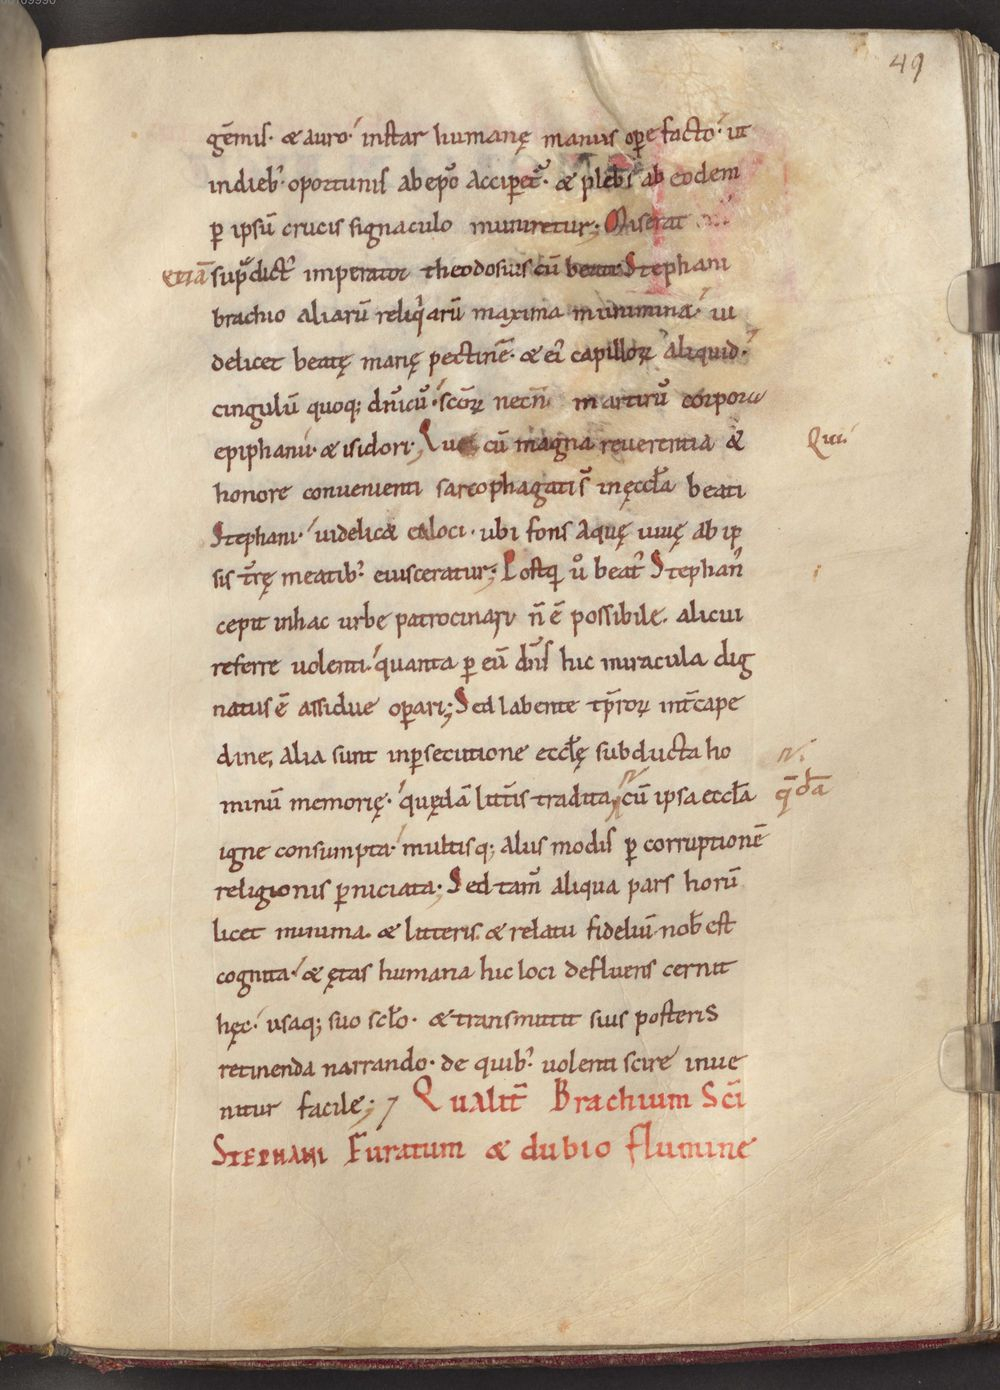 49
gēmis· & auro·́ instar humanę manus oꝑe facto·́ ut
indieb᷒· oportunis ab ep̄o acciꝑet᷑· & plebs ab eodem
ꝑ ipsū crucis signaculo muniretur; Miserat
etiā sup͛dict᷒ imperator theodosius cū beati Stephani
brachio aliarū reliq͛arū maxima munimina·́ ui
delicet beatę marię pectinē· & ei᷒ capilloꝝ aliquid·́
cingulū quoq; dn̄icū·́ scōꝝ necn̄ martirū corpora
epiphanii· & isidori; Quę cū magna reuerentia & Qui·́
honore conuenienti sarcophagatis᷒ inęccƚa beati
Stephani·́ uidelic& eo loci· ubi fons aquę uiuę ab ip
sis t̄rę meatib᷒ euisceratur; Postꝗ ů beat᷒ Stephan᷒
cepit inhac urbe patrocinari n̄ ē possibile· alicui
referre uolenti·́ quanta ꝑ eū dn̄s hic miracula dig
natus ē assidue oꝑari; Sed labente tp̄roꝝ int̄cape
dine, alia sunt inꝑsecutione eccƚę subducta ho
minū memorię·́ quędā litt̄is tradita, cū ipsa eccƚa q̄dā
igne consumpta·́ multisq; aliis modis ꝑ corruptionē
religionis ꝑniciata; Sed tam̄ aliqua pars horū
licet minima· & litteris· & relatu fideliū nob̄ est
cognita·́ & ętas humana hic loci defluens cernit
hęc·́ usaq; suo scƚo· & transmittit suis posteris
retinenda narrando· de quib᷒ uolenti scire inue
nitur facile; 7 Qualit̄ Brachium Sc̄i
Stephani Furatum & dubio flumine